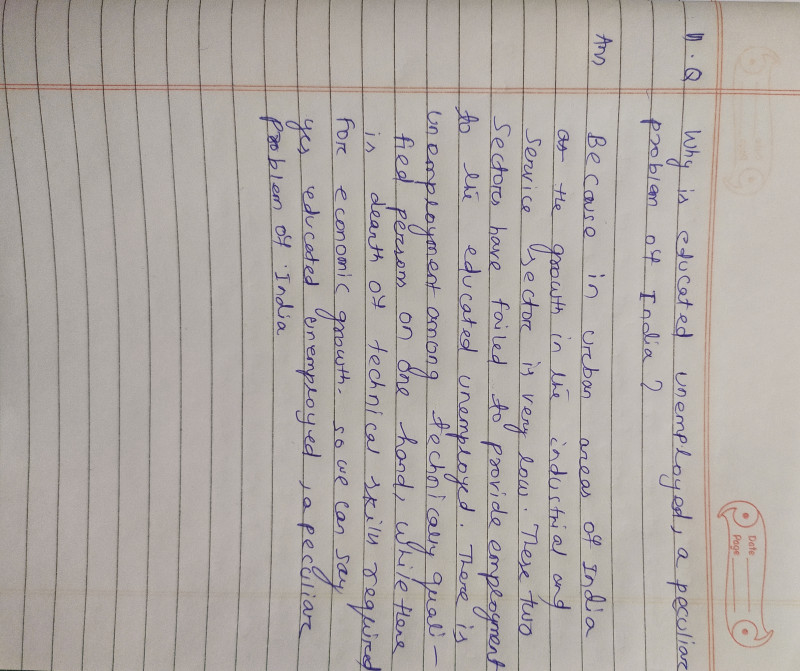 11.Q Why is educated unemployed, a peculiar
problem of India?
Ans Because in urban areas of India
as the growth in the industrial and
service sector is very low. These two
Sectors have failed to provide employment
to the educated unemployed. There is
unemployment among technically quali-
fied person on one hand, while there
is dearth of technical skills required
For economic growth. so we can say
yes educated unemployed, a peculiar
problem of India
Date
Page